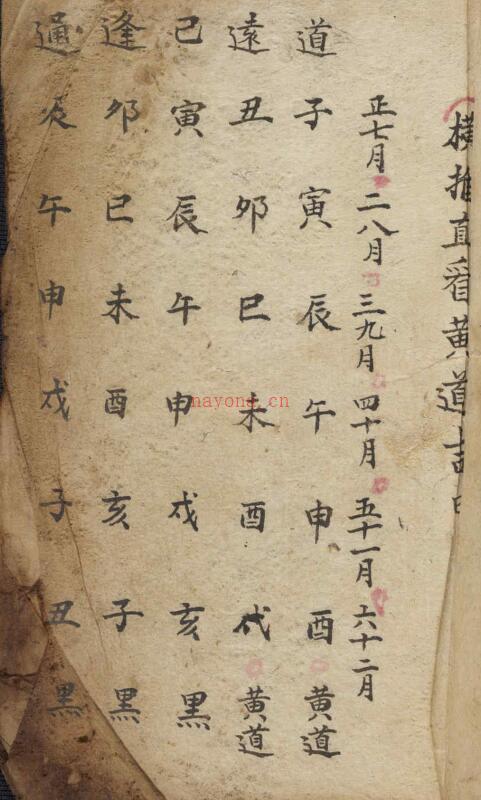 橫推直看黃道吉日
正七月 二八月 三九月 四十月 五十一月 六十二月
道子寅辰午申酉黃道
遠丑卯巳未酉戌黃道
己寅辰午申戌亥黑
逢卯巳未酉亥子黑
通辰午申戌子丑黑
nayona.cn